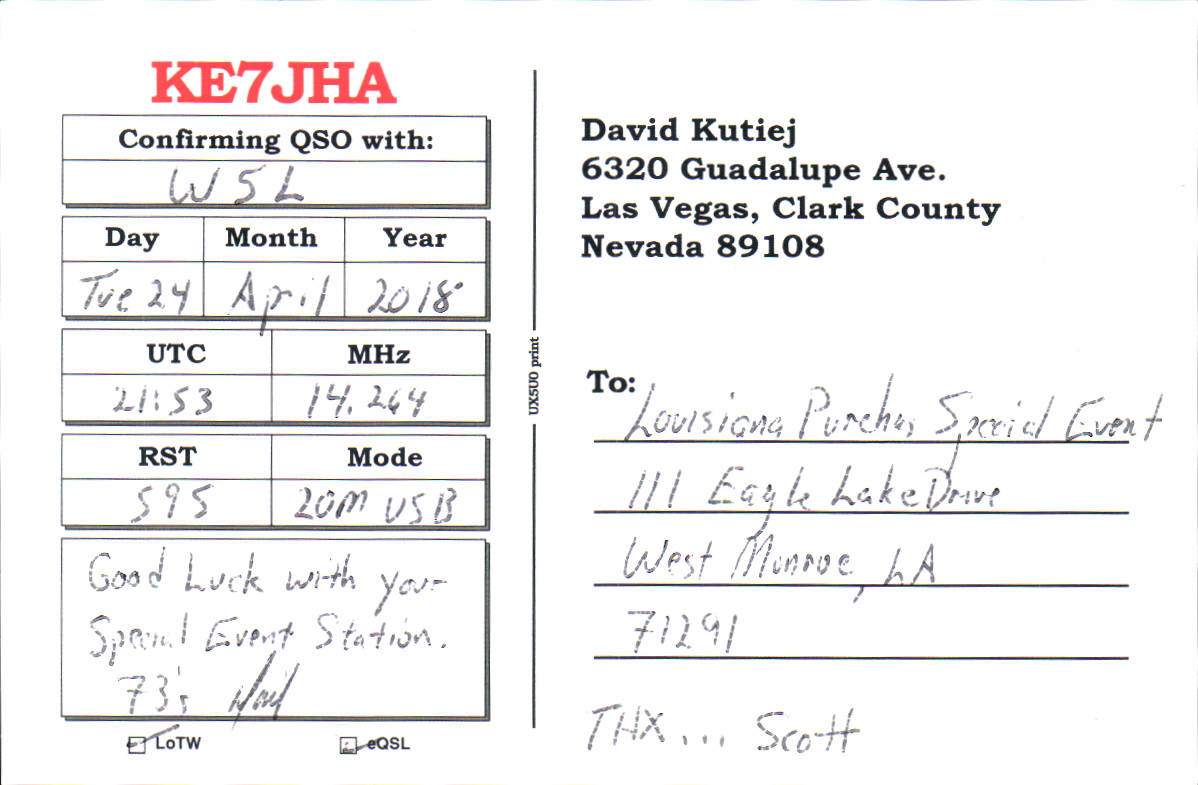 KE7JHA
Confirming QSO with:
W5L
Day Month Year
Tue 24 April 2018
UTC MHz
21:53 14.264
RST Mode
595 20m USB
Good Luck with your
Special Event Station.
73's
LoTW eQSL
UX5UO print
David Kutiej
6320 Guadalupe Ave.
Las Vegas, Clark County
Nevada 89108
To:
Louisiana Purchas Special Event
111 Eagle Lake Drive
West Monroe, LA
71291
THX... Scott